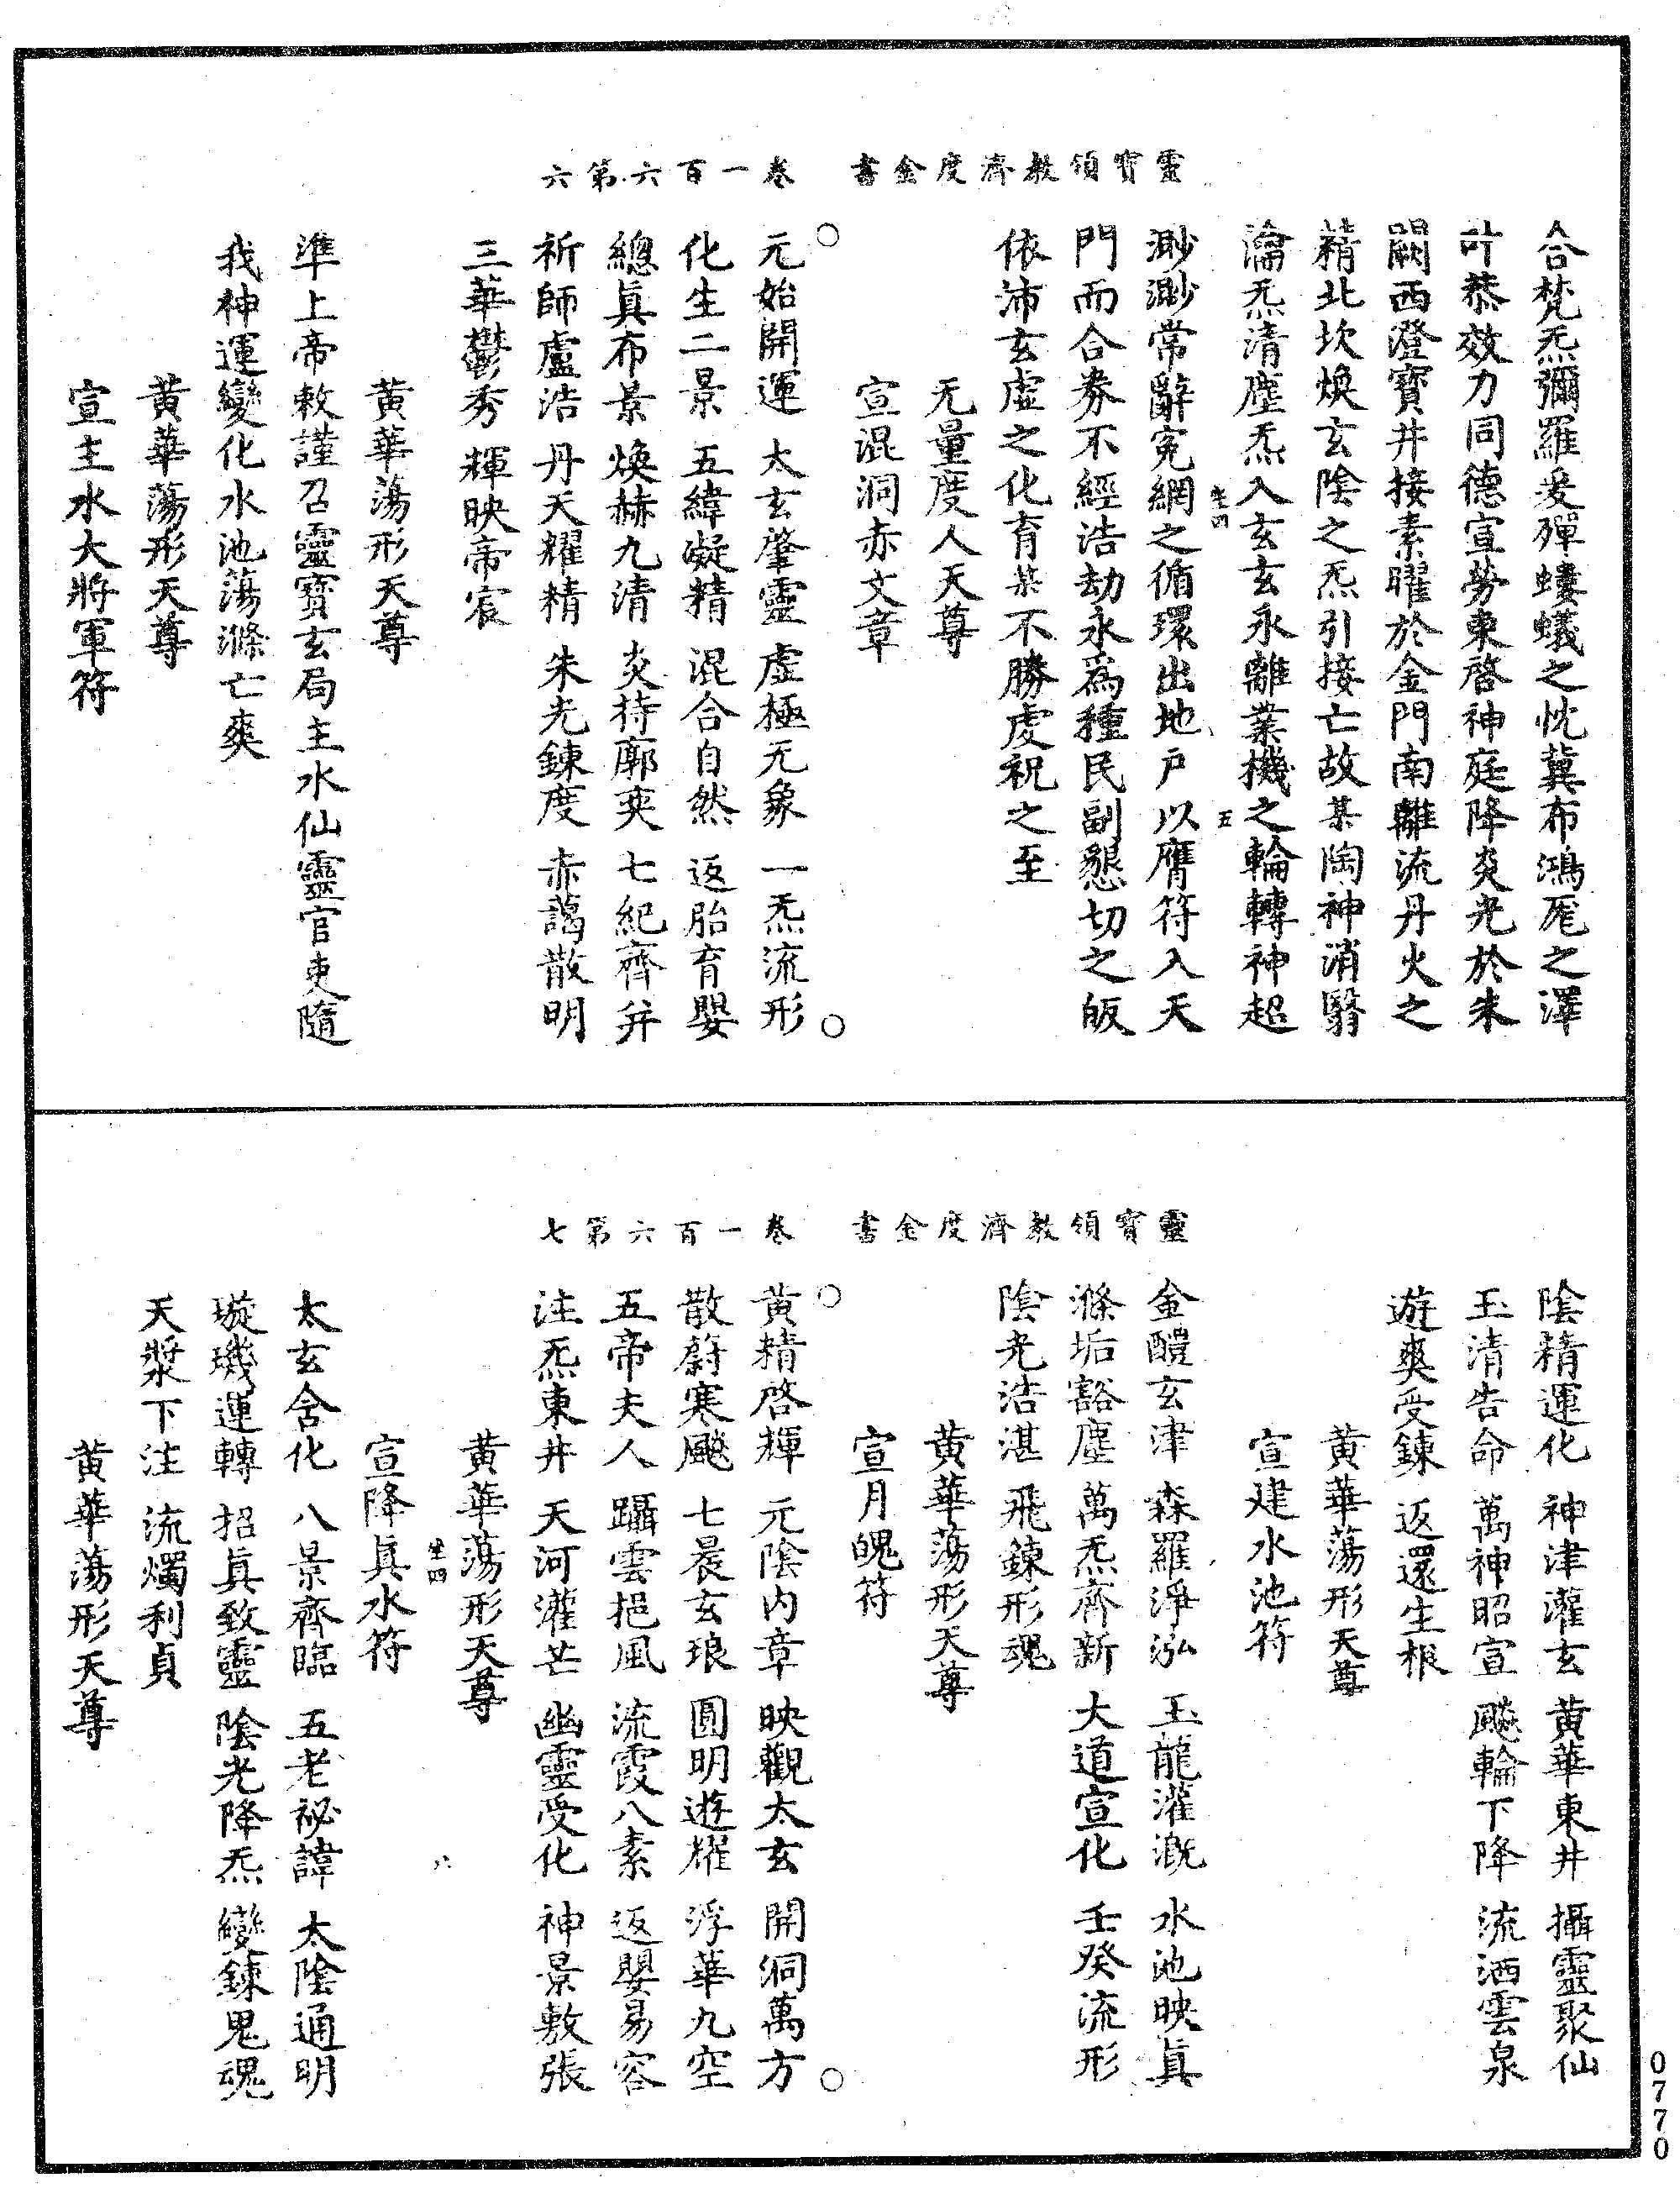 靈寶領教濟度金書 卷一百六第六
合梵炁彌羅爰殫螻蟻之忱冀布鴻厖之澤
叶恭效力同德宣勞東啓神庭降炎光於朱
闕西澄寶井接素曜於金門南離流丹火之
精北坎煥玄陰之炁引接亡故某陶神消翳
瀹炁清塵炁入玄玄永離業機之輪轉神超
坐四 五
渺渺常辭寃網之循環出地戶以膺符入天
門而合劵不經浩劫永爲種民副懇切之皈
依沛玄虛之化育某不勝虔祝之至
无量度人天尊
宣混洞赤文章
元始開運 太玄肇靈 虛極无象 一炁流形
化生二景 五緯凝精 混合自然 返胎育嬰
總眞布景 煥赫九清 炎持廓奕 七紀齊并
祈師盧浩 丹天耀精 朱光鍊度 赤藹散明
三華鬱秀 輝映帝宸
黄華蕩形天尊
準上帝敕謹召靈寶玄局主水仙靈官吏隨
我神運變化水池蕩滌亡爽
黄華蕩形天尊
宣主水大將軍符
靈寶領教濟度金書 卷一百六第七
陰精運化 神津灌玄 黄華東井 攝靈聚仙
玉清告命 萬神昭宣 飈輪下降 流洒雲泉
遊爽受鍊 返還生根
黄華蕩形天尊
宣建水池符
金醴玄津 森羅淨泓 玉龍灌溉 水池映眞
滌垢豁塵 萬炁齊新 大道宣化 壬癸流形
陰光浩湛 飛鍊形魂
黄華蕩形天尊
宣月魄符
黄精啓輝 元陰内章 映觀太玄 開洞萬方
散蔚寒飈 七晨玄琅 圓明遊耀 浮華九空
五帝夫人 躡雲挹風 流霞八素 返嬰易容
注炁東井 天河灌芒 幽靈受化 神景敷張
黄華蕩形天尊
坐四 八
宣降眞水符
太玄含化 八景齊臨 五老祕諱 太陰通明
璇璣運轉 招眞致靈 陰光降炁 變鍊鬼魂
天漿下注 流燭利貞
黄華蕩形天尊
0770